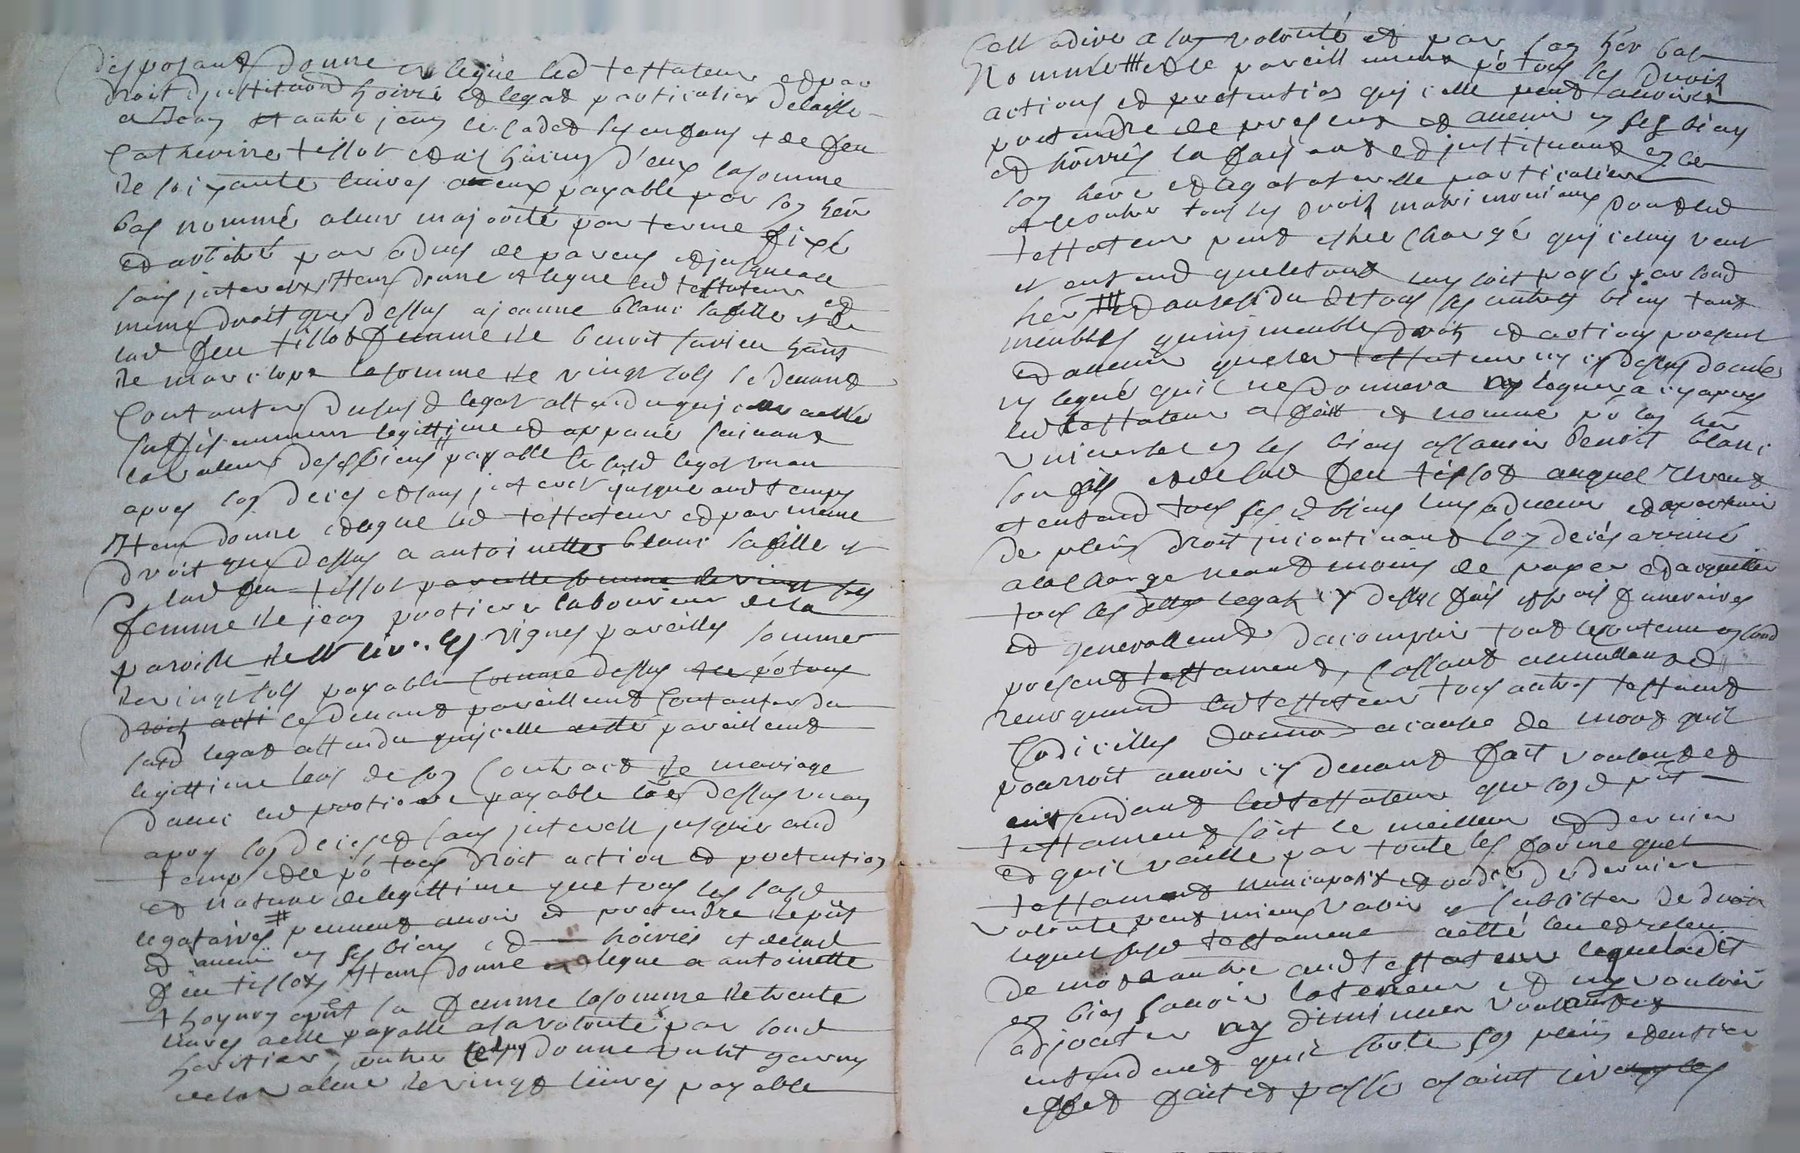 disposant donne et legue led testateur et par
droit dinstitu͠on hoirie et legat particulier delaisse
a Jean et autre jean le cadet ses enfans et de feu
Catherinne tissot et a ses hoirs d'eux la somme
de soixante livres a eux payable par son her͠
bas nommé a leur majorité par terme fixé
et arbitré par advis de parens et jusques a ce
sans interests Item donne et legue led testateur et
mesme droit que dessus a jeanne blanc sa fille et de
lad feu tissot femme de benoit
de la somme de vingt sols se devant
contanter du susd legat attendu qu'icelle a esté
suffisemment legittime et appané suivant
la valleur de ses biens payable led legat un an
apres son decés et sans interest jusque aud temps
Item donne et legue led testateur et par mesme
droit que dessus a antoinette blanc sa fille et
de lad feu tissot pareille somme de vingt sols
femme de jean protiere laboureur de la
paroisse de st les vignes pareille somme
de vingt sols payable comme dessus et ce po͠ tous
droit acti se devant pareillem͠t contanter du
susd legat attendu qu'icelle a esté pareillem͠t
legittime lors de son contract de mariage
d'avec led protiere payable led dessus un an
apres son decés et sans interest jusques aud
temps et ce po͠ tous droit action et pretention
et nature de legittime que tous les susd
legataires peuvent avoir et pretendre de p͠nt
et avenir en ses biens et hoiries et de lad
feu tissot Item donne et legue a antoinette
thoynon ap͠nt sa femme la somme de trente
livres a elle payable a sa volonté par sond
heritier, outre ce luy donne un lit garny
de la valeur de vingt livres payable
C'est a dire a sa volonté et par son her͠ bas
nommé et ce pareillement po͠ tous les droits
actions et pretentions qu'icelle peut avoir et
pretendre de present et avenir en ses biens
et hoiries la faisant et instituant en ce
son here et legatataire particuliere
A outre tous les droits matrimoniaux dont led
testateur peut estre chargé qu'icelluy veut
et entend que le tout luy soit payé par sond
her͠ Et au residu de tous ses autres biens tant
meubles qu'inmeubles droits et actions present
et avenir que led testateur n'a cy dessus donnés
ny legué qu'il ne donnera ny leguera cy apres
led testateur a fait et nommé po͠ son her͠
universel en ses biens assavoir benoit blanc
son fils et de lad feu tissot auquel il veut
et entend tous ses d biens luy advenir et apartenir
de plein droit incontinant son decés arrivé
a la charge neantmoins de payer et acquitter
tous les legats cy dessus frais funeraires
et generallem͠t d'acomplir tout le contenu en sond
present testament, cassant annullant et
revoquant led testateur tous autres testament
codicilles donna͠on a cause de mort qu'il
pourroit avoir cy devant fait voulant et
entendant led testateur que sond p͠nt
testament soit le meilleur et dernier
et qu'il vaille par toute les forme que
testament nuncupatif et de derniere
volonté peut mieux valoir et subsister de droit
lequel susd testament a esté leu et releu
de mot a autre aud testateur lequel a dit
en bien savoir la teneur et n'y vouloir
adjouter ny diminuer voulant et
entendant qu'il sorte son plein et entier
effet fait et passé a saint